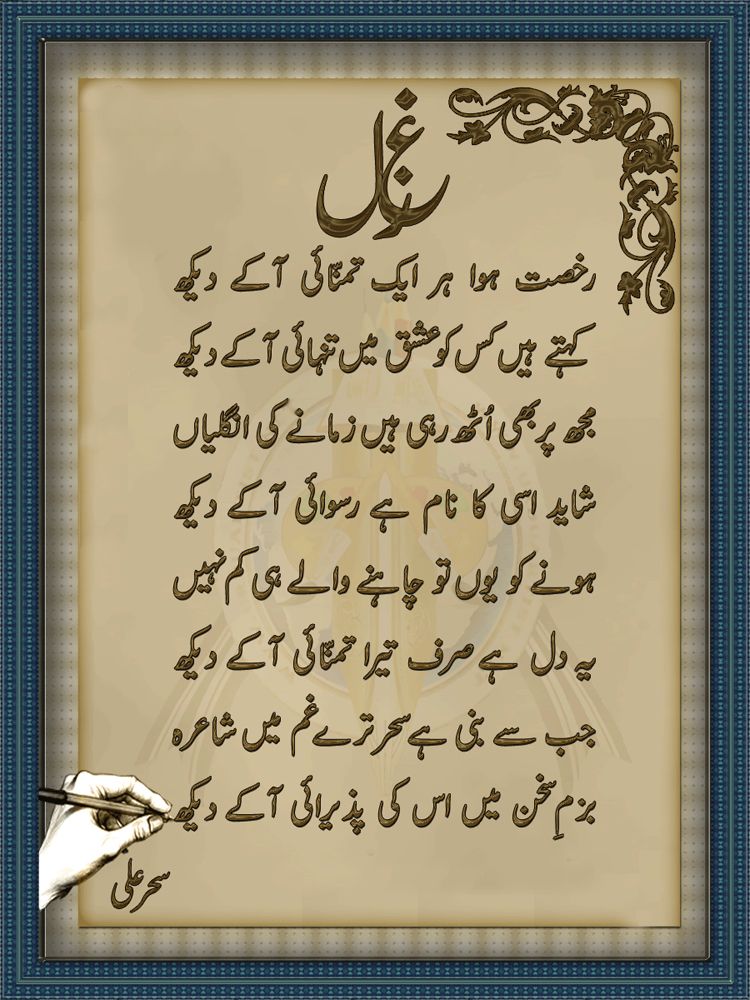 غزل
رخصت ہوا ہر ایک تمنّائی آ کے دیکھ
کہتے ہیں کس کو عشق میں تنہائی آ کے دیکھ
مجھ پر بھی اُٹھ رہی ہیں زمانے کی انگلیاں
شاید اسی کا نام ہے رسوائی آ کے دیکھ
ہونے کو یوں تو چاہنے والے ہی کم نہیں
یہ دل ہے صرف تیرا تمنّائی آ کے دیکھ
جب سے بنی ہے سحر ترے غم میں شاعرہ
بزمِ سخن میں اس کی پذیرائی آ کے دیکھ
سحر علی